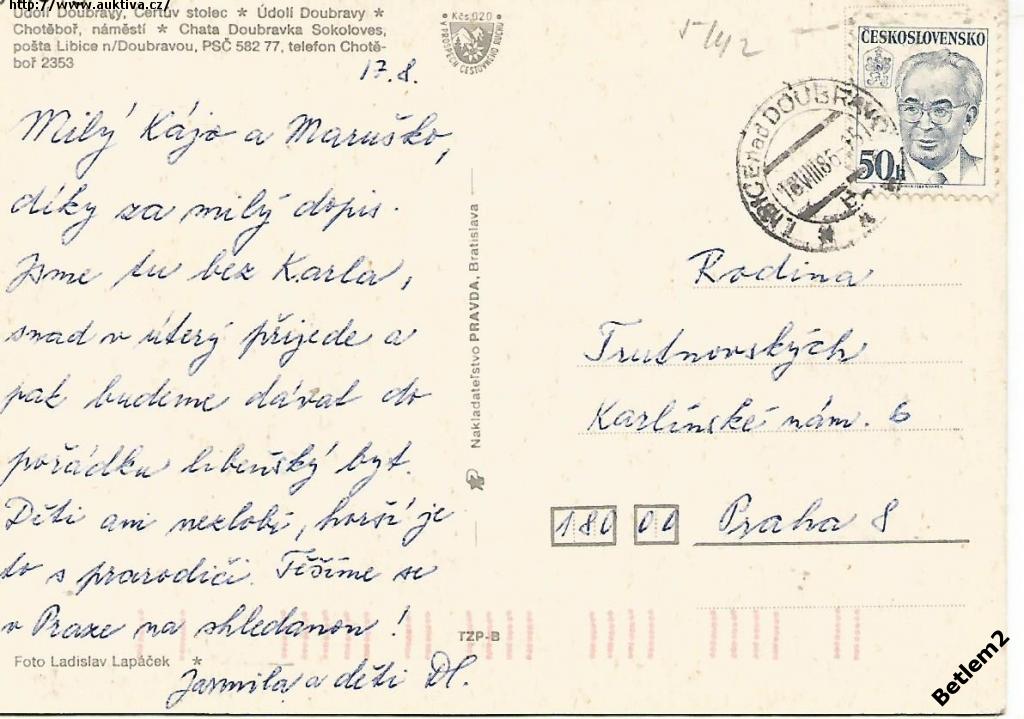 http://www.auktiva.cz/
Údolí Doubravy, Čertův stolec * Údolí Doubravy *
Chotěboř, náměstí * Chata Doubravka Sokoloves,
pošta Libice n/Doubravou, PSČ 582 77, telefon Chotě-
boř 2353
17.8.
Milý Kájo a Maruško,
díky za milý dopis.
Jsme tu bez Karla,
snad v úterý přijede a
pak budeme dávat do
pořádku libeňský byt.
Děti ani nezlobí, horší je
to s prarodiči. Těšíme se
v Praze na shledanou!
Jarmila a děti Dl.
Foto Ladislav Lapáček *
Kčs 0,20
PROSPĚCH CESTOVNÍHO RUCHU
Nakladateľstvo PRAVDA, Bratislava
TZP-B
5/42
ČESKOSLOVENSKO
50h
LIBICE nad DOUBRAVOU
Rodina
Trutnovských
Karlínské nám. 6
180 00 Praha 8
Betlem2